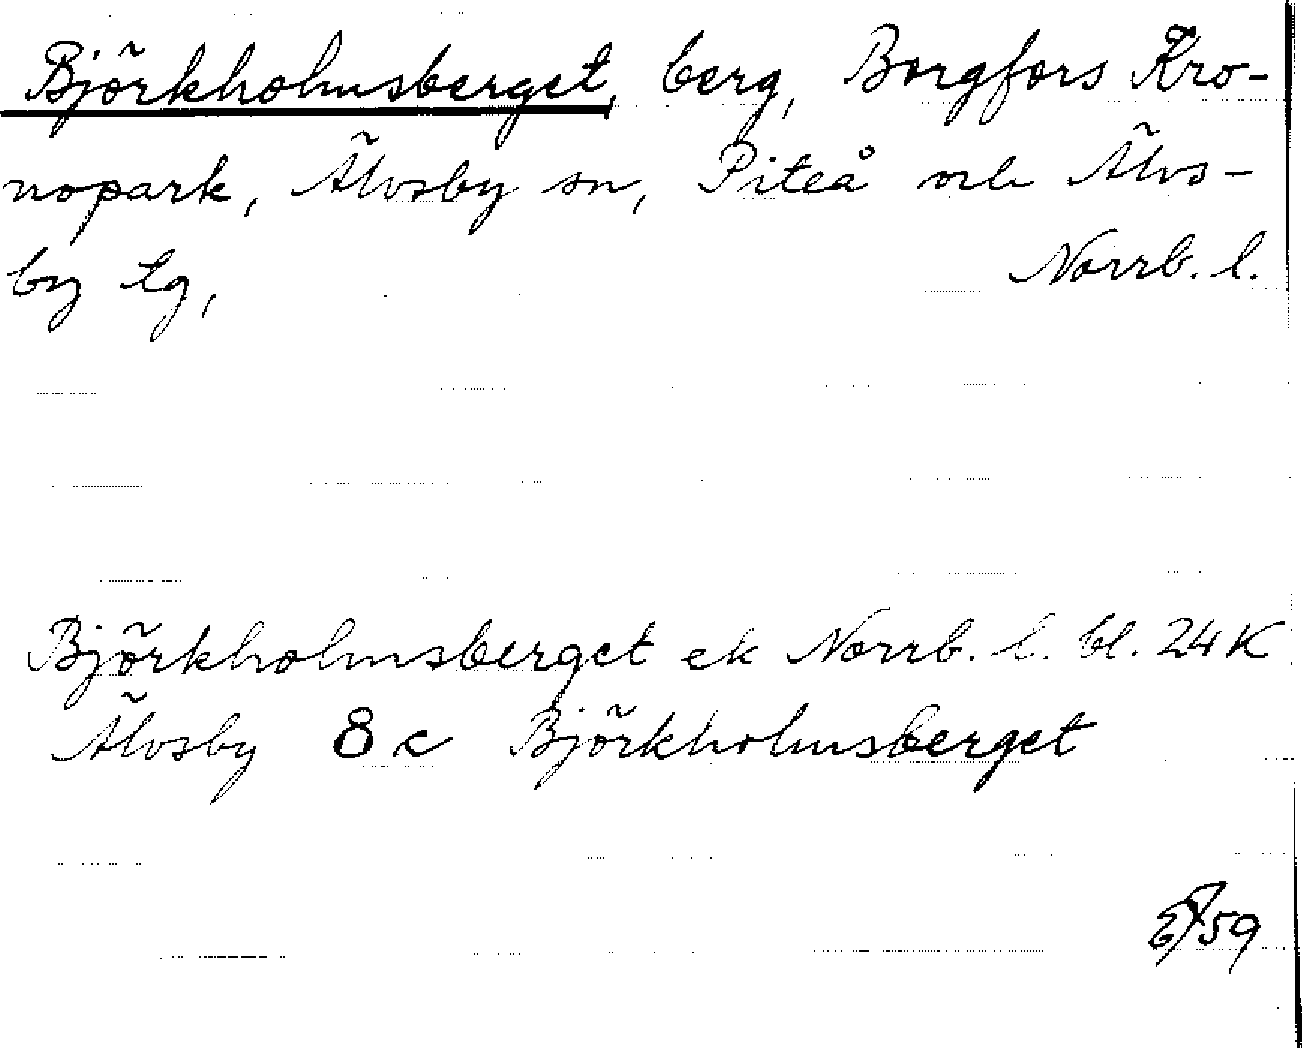 Björkholmsberget, berg, Borgfors Kro-
nopark, Älvsby sn, Piteå och Älvs-
by tg, Norrb. l.
Björkholmsberget ek Norrb. l. bl. 24K
Älvsby 8c Björkholmsberget
59